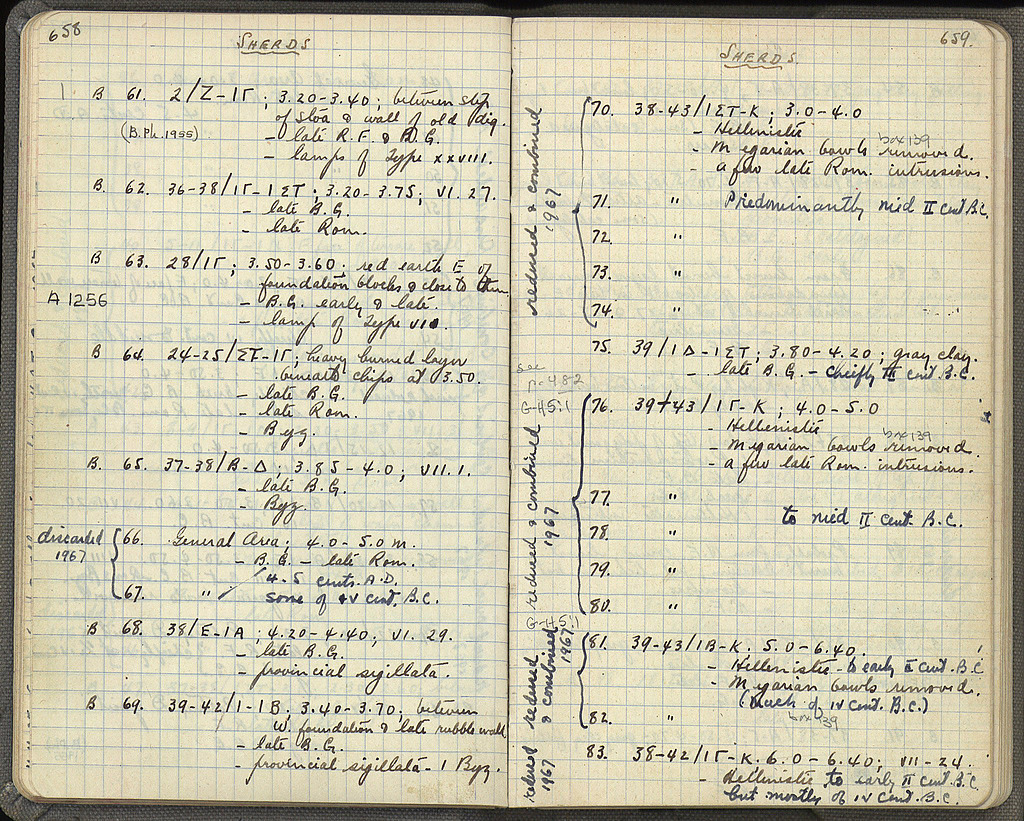 658
SHERDS
B 61. 2/Z-1Γ; 3.20-3.40; between step
of stoa & wall of old dig.
(B.Ph. 1955) - late R.F. & B.G.
- lamps of Type XXVIII.
B. 62. 36-38/1Γ-1ΣΤ; 3.20-3.75; VI. 27.
- late B.G.
- late Rom.
B 63. 28/1Γ; 3.50-3.60; red earth E of
foundation blocks & close to them
A 1256 - B.G. early & late.
- lamp of Type VII.
B 64. 24-25/ΣΤ-1Γ; heavy burned layer
beneath chips at 3.50.
- late B.G.
- late Rom.
- Byz.
B. 65. 37-38/B-Δ; 3.85-4.0; VII.1.
- late B.G.
- Byz.
discarded 1967
66. General Area; 4.0-5.0 m.
- B.G. - late Rom.
4-5 cents. A.D.
67. " some of IV cent. B.C.
B 68. 38/E-1A; 4.20-4.40; VI. 29.
- late B.G.
- provincial sigillata.
B 69. 39-42/1-1B; 3.40-3.70; between
W. foundation & late rubble wall
- late B.G.
- provincial sigillata - 1 Byz.
659.
SHERDS.
reduced & combined 1967
70. 38-43/1ΣΤ-K; 3.0-4.0
- Hellenistic
box 139
- Megarian bowls removed.
- a few late Rom. intrusions.
71. " Predominantly mid II cent B.C.
72. "
73. "
74. "
75. 39/1Δ-1ΣΤ; 3.80-4.20; gray clay.
- late B.G. - cheifly III cent. B.C.
see
p. 482
G-45:1
reduced & combined 1967
76. 39+43/1Γ-K; 4.0-5.0
- Hellenistic
box 139
- Megarian bowls removed.
- a few late Rom. intrusions.
77. "
to mid II cent. B.C.
78. "
79. "
80. "
G-45:1
reduced & combined 1967
81. 39-43/1B-K. 5.0-6.40.
- Hellenistic - to early II cent. B.C
- Megarian bowls removed.
(much of IV cent. B.C.)
82. " box 139
reduced 1967
83. 38-42/1Γ-K. 6.0-6.40; VII-24.
- Hellenistic to early II cent. B.C.
but mostly of IV cent. B.C.